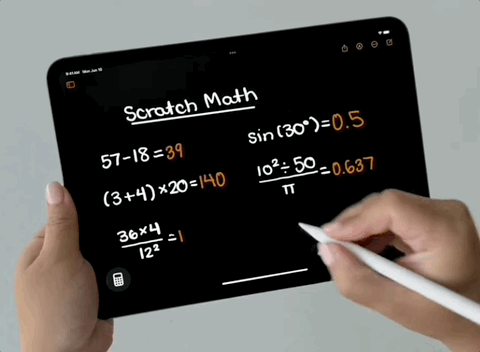 9:41 AM Mon Jun 10
Scratch Math
57-18=39
(3+4)×20=140
36×4
12²
=1
sin(30°)=0.5
10²÷50
π
=0.637